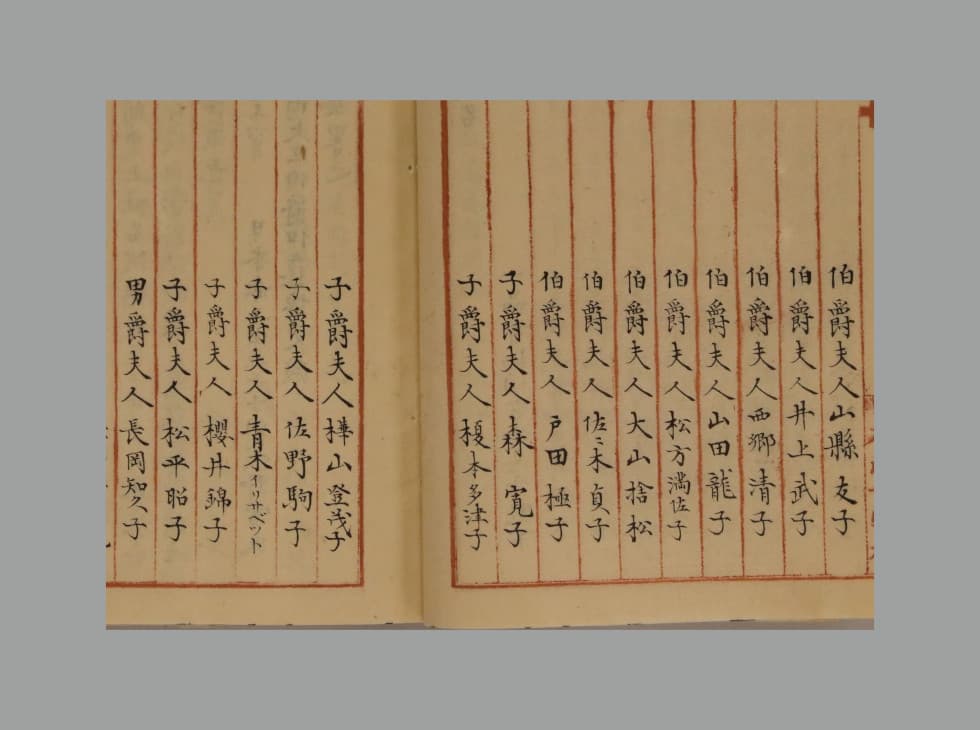 伯爵夫人山縣友子
伯爵夫人井上武子
伯爵夫人西郷清子
伯爵夫人山田龍子
伯爵夫人松方満佐子
伯爵夫人大山捨松
伯爵夫人佐〻木貞子
伯爵夫人戸田極子
子爵夫人森寛子
子爵夫人榎本多津子
子爵夫人樺山登茂子
子爵夫人佐野駒子
子爵夫人青木イリサベット
子爵夫人櫻井錦子
子爵夫人松平昭子
男爵夫人長岡知久子